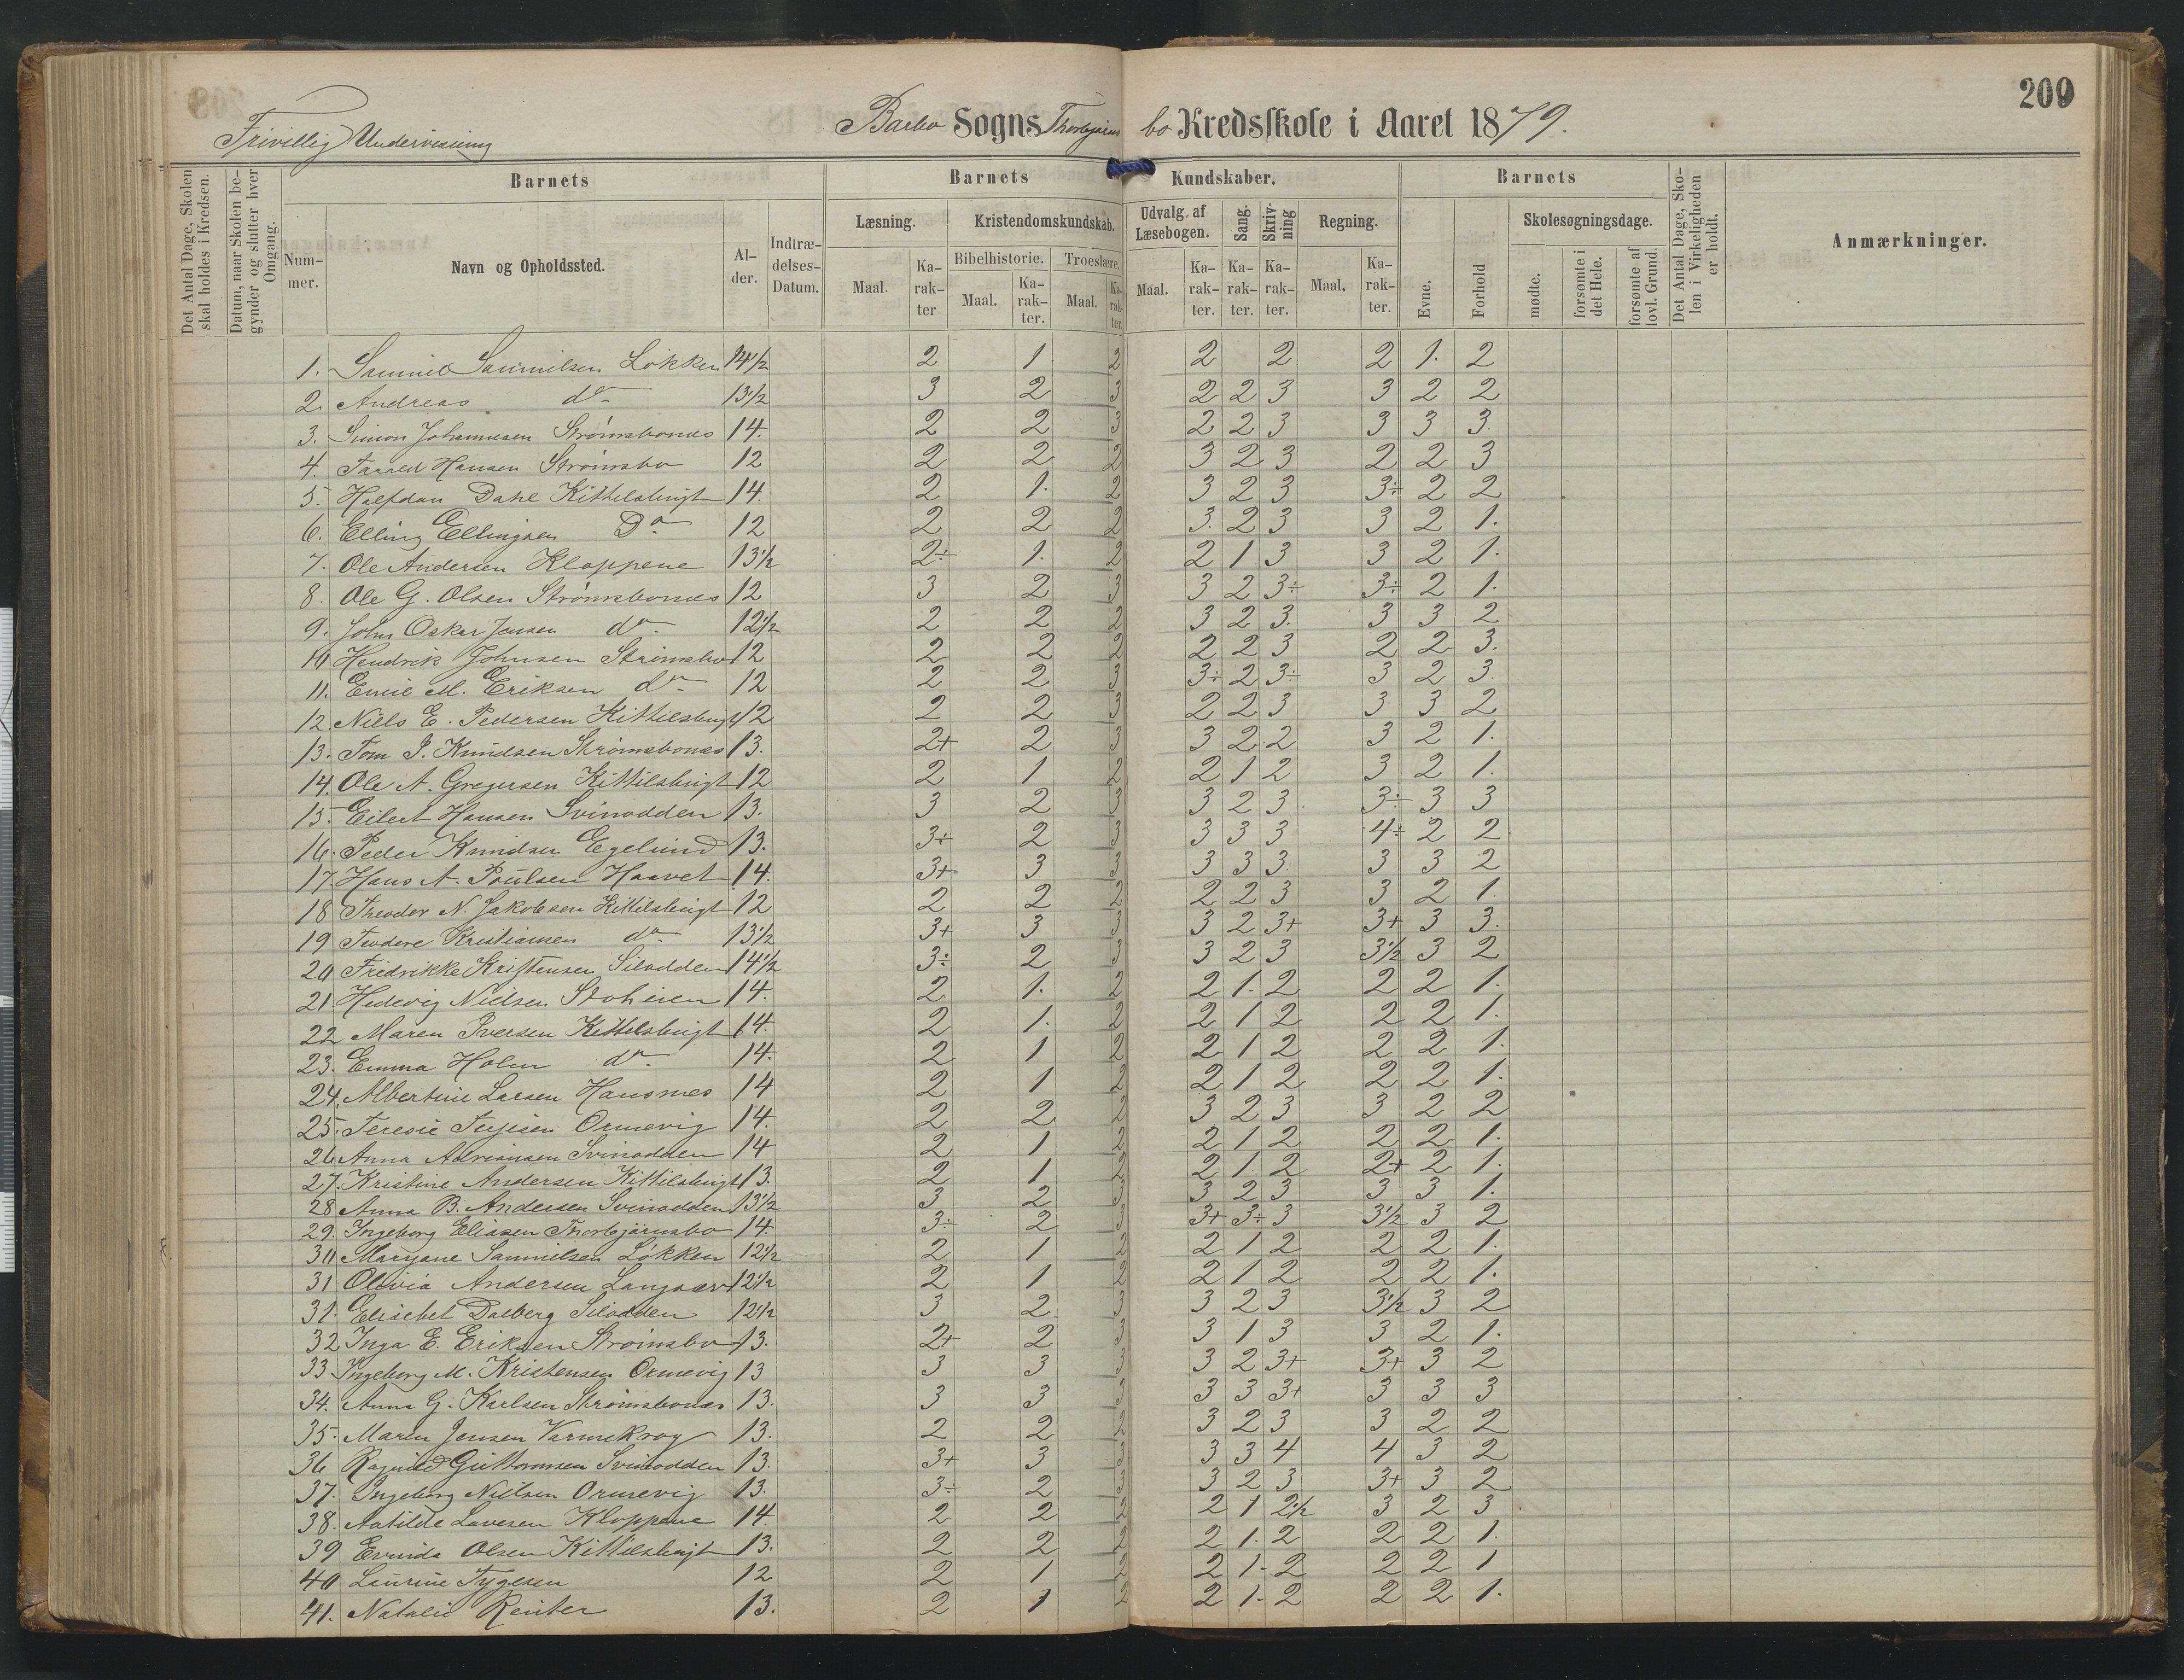 209
Barbo Sogns Thorbjørnsbo Kredsskole i Aaret 1879.
Frivillig Undervisning
Det Antal Dage, Skolen skal holdes i Kredsen.
Datum, naar Skolen begynder og slutter hver Omgang.
Barnets
Nummer.
Navn og Opholdssted.
Alder.
Indtrædelses-Datum.
Barnets Kundskaber.
Læsning.
Maal. Karakter
Kristendomskundskab.
Bibelhistorie.
Maal. Karakter.
Troeslære.
Maal. Karakter.
Udvalg af Læsebogen.
Maal. Karakter.
Sang.
Karakter.
Skrivning
Karakter.
Regning.
Maal. Karakter.
Barnets
Evne.
Forhold
Skolesøgningsdage.
mødte.
forsømte i det Hele.
forsømte af lovl. Grund.
Det Antal Dage, Skolen i Virkeligheden er holdt.
Anmærkninger.
1. Samuel Samuelsen Løkken 14 1/2 2 1 2 2 2 2 1. 2
2. Andreas do 13 1/2 3 2 3 2 2 3 3 2 2
3. Simon Johannesen Strømsbones 14. 2 2 3 2 2 3 3 3 3.
4. Taarald Hansen Strømsbo 12 2 2 2 3 2 3 2 2 3
5. Halfdan Dahl Kittelsbugt 14. 2 1. 2 3 2 3 3÷ 2 2
6. Elling Ellingsen Do 12 2 2 2 3. 2 3 3 2 1.
7. Ole Andersen Kloppene 13 1/2 2÷ 1. 2 2 1 3 3 2 1.
8. Ole G. Olsen Strømsbones 12 3 2 3 3 2 3÷ 3÷ 2 1.
9. John Oskar Jensen do 12 1/2 2 2 2 3 2 3. 3 3 2
10 Hendrik Johnsen Strømsbo 12 2 2 2 2 2 3 2 2 3.
11. Emil M. Eriksen do 12 2 2 3 3÷ 2 3÷ 3 2 3.
12. Niels E. Pedersen Kittilsbugt 12 2 2 3 2 2 3 3 3 2
13. Tom J. Knudsen Strømsbones 13. 2+ 2 3 3 2. 2 3 2 1.
14. Ole A. Gregersen Kittilsbugt 12 2 1 2 2 1 2 3 2 1.
15. Eilert Hansen Svinodden 13. 3 2 3 3 2 3 3÷ 3 3
16. Peder Knudsen Egelund 13. 3÷ 2 3 3 3 3 4÷ 2 2
17. Hans A. Poulsen Haavet 14. 3+ 3 3 3 3 3. 3 3 2
18 Theodor N. Jakobsen Kittilsbugt 12 2 2 2 2 2 3 3 2 1.
19 Teodore Kristiansen do 13 1/2 3+ 3 3 3 2 3+ 3+ 3 3.
20 Fredrikke Kristensen Silodden 14 1/2 3÷ 2 3 3 2 3 3 1/2 3 2
21. Hedevig Nielsen Stoheien 14. 2 1. 2 2 1. 2 2 2 1.
22 Maren Iversen Kittelsbugt 14. 2 1. 2 2 1 2 2 2 1.
23. Emma Holm do 14. 2 1 2 2 1 2 2 2 1.
24. Albertine Larsen Hansnes 14 2 1 2 2 1 2 2 2 1.
25. Teresie Terjesen Ormevig 14. 2 2 2 3 2 3 3 2 2
26 Anna Adriansen Svinodden 14 2 1 2 2 1 2 2 2 1.
27. Kristine Andersen Kittilsbugt 13. 2 1 2 2 1. 2 2+ 2 1.
28 Anna B. Andersen Svinodden 13 1/2 3 2 3 3 2 3 3 3 1.
29. Ingeborg Eliasen Thorbjørnsbo 14. 3÷ 2 3 3+ 3÷ 3 3 1/2 3 2
30 Maryane Samuelsen Løkken 12 1/2 2 1 2 2 1 2 2 2 1.
31 Olivia Andersen Langaas 12 1/2 2 1 2 2 1 2 2 2 1.
31. Elisebet Dalberg Silodden 12 1/2 3 2 3 3 2 3 3 1/2 3 2
32 Inga E. Eriksen Strømsbo 13. 2+ 2 3 3 1 3 3 2 1.
33 Ingeborg M. Kristensen Ormevig 13 3 3 3 3 2 3+ 3+ 3 2
34. Anna G. Karlsen Strømsbones 13. 3 3 3 3 3 3+ 3 3 3
35. Maren Jensen Varmekrog 13. 2 2 2 3 2 3 3 2 2
36 Ragnild Guttormsen Svinodden 13. 3+ 3 3 3 3 4 4 3 2
37. Ingeborg Nielsen Ormevig 13. 3÷ 2 3 3 2 3 3+ 3 2
38. Matilde Lavesen Kloppene 14. 2 2 2 2 1 2 1/2 3 2 3
39 Evinda Olsen Kittilsbugt 13. 2 2 2 2 1. 2 2 2 1.
40 Laurine Tygesen 12 2 1 2 2 1- 2 2 2 1
41. Natalie Reuter 13. 2 1 2 2 1- 2 2 2 1.